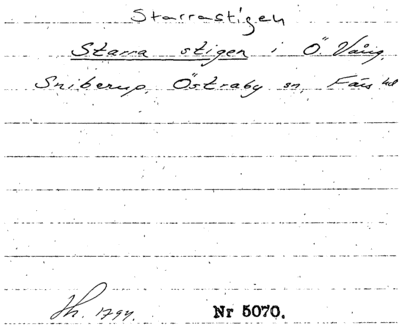 Starrastigen
Starra stigen i Ö. Vång,
Sniberup, Östraby sn, Färs hd
Th. 1794. Nr 5070.